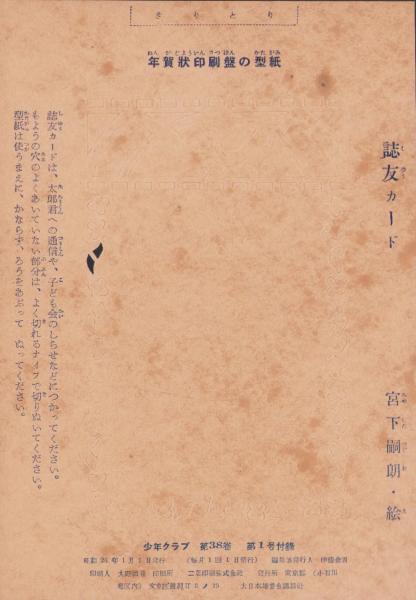 きりとり
年賀狀印刷盤の型紙
誌友カード
宮下嗣朗・絵
誌友カードは、太郎君への通信や、子ども会のしらせなどにつかってください。
もようの穴のよくあいていない部分は、よく切れるナイフで切りぬいてください。
型紙は使うまえに、かならず、ろうをあぶって ぬってください。
少年クラブ 第38巻 第1号付錄
(毎月1回1日発行)
大日本雄弁会講談社